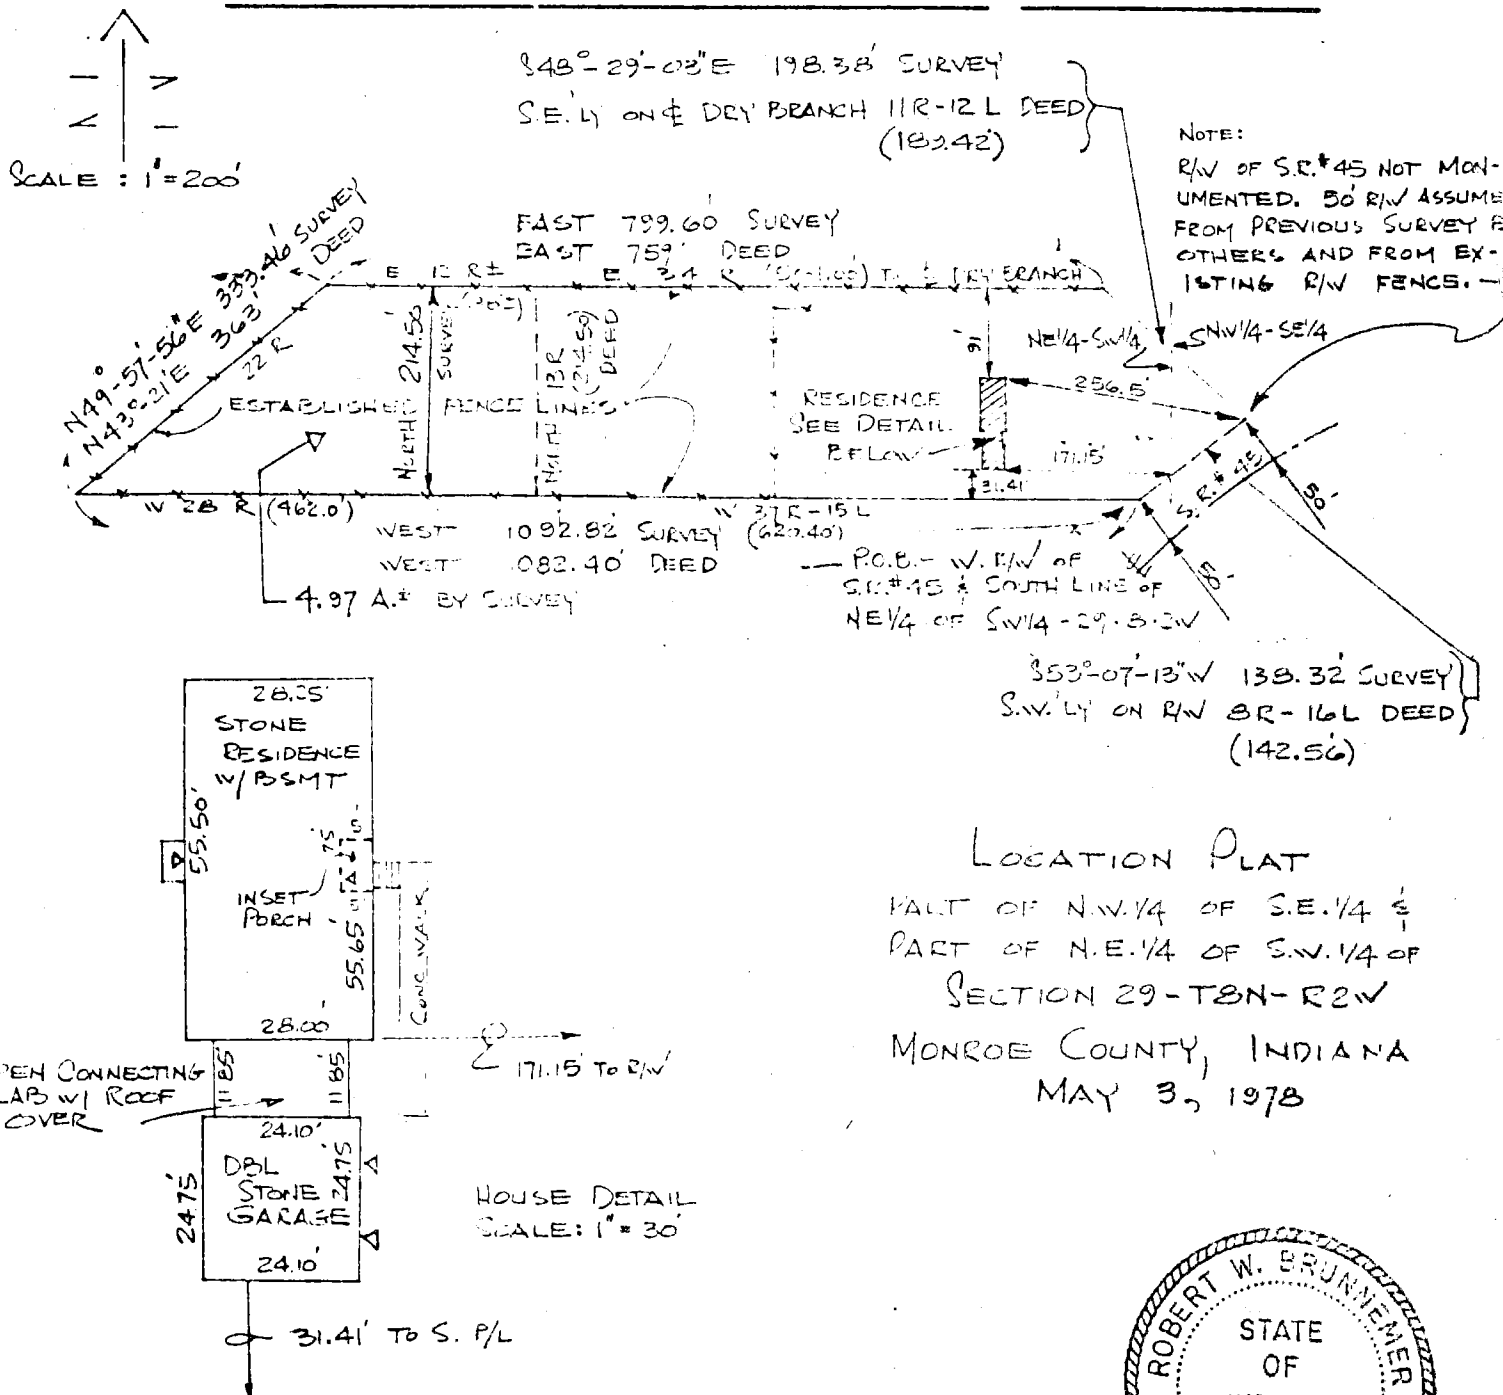 S48°-29'-03"E 198.38' SURVEY
S.E.'LY ON ℄ DRY BRANCH 11R-12 L DEED
NOTE:
R/W OF S.R.#45 NOT MON-
UMENTED. 50' R/W ASSUME
FROM PREVIOUS SURVEY B
OTHERS AND FROM EX-
ISTING R/W FENCE.
SCALE : 1"=200'
N49°-57'-56"E 333.46' SURVEY
N43°-21'E 363' DEED
22 R
EAST 799.60' SURVEY
EAST 759' DEED
E 12 R±
E 34 R TO ℄ DRY BRANCH
NORTH 214.50' SURVEY
NORTH 13R (214.50) DEED
ESTABLISHED FENCE LINES
91'
NE1/4-SW1/4
NW1/4-SE1/4
RESIDENCE
SEE DETAIL
BELOW
256.5'
171.15'
31.41'
S.R.#45
50'
50'
W 28 R (462.0')
W 37R-15 L
(620.40')
WEST 1092.82' SURVEY
WEST 1082.40' DEED
4.97 A.± BY SURVEY
P.O.B.- W. R/W OF
S.R.#45 & SOUTH LINE OF
NE1/4 OF SW1/4-29-8-2W
S53°-07'-13"W 138.32' SURVEY
S.W.'LY ON R/W 8R-16L DEED
(142.56')
28.25'
STONE
RESIDENCE
W/BSMT
55.50'
INSET
PORCH
55.65'
CONC. WALK
28.00'
171.15' TO R/W
PEN CONNECTING
LAB W/ ROOF
OVER
11.85'
11.85'
24.10'
DBL
STONE
GARAGE
24.75'
24.75'
24.10'
31.41' TO S. P/L
HOUSE DETAIL
SCALE: 1"=30'
LOCATION PLAT
PART OF N.W.1/4 OF S.E.1/4 &
PART OF N.E.1/4 OF S.W.1/4 OF
SECTION 29-T8N-R2W
MONROE COUNTY, INDIANA
MAY 3, 1978
ROBERT W. BRUNNEMER
STATE
OF